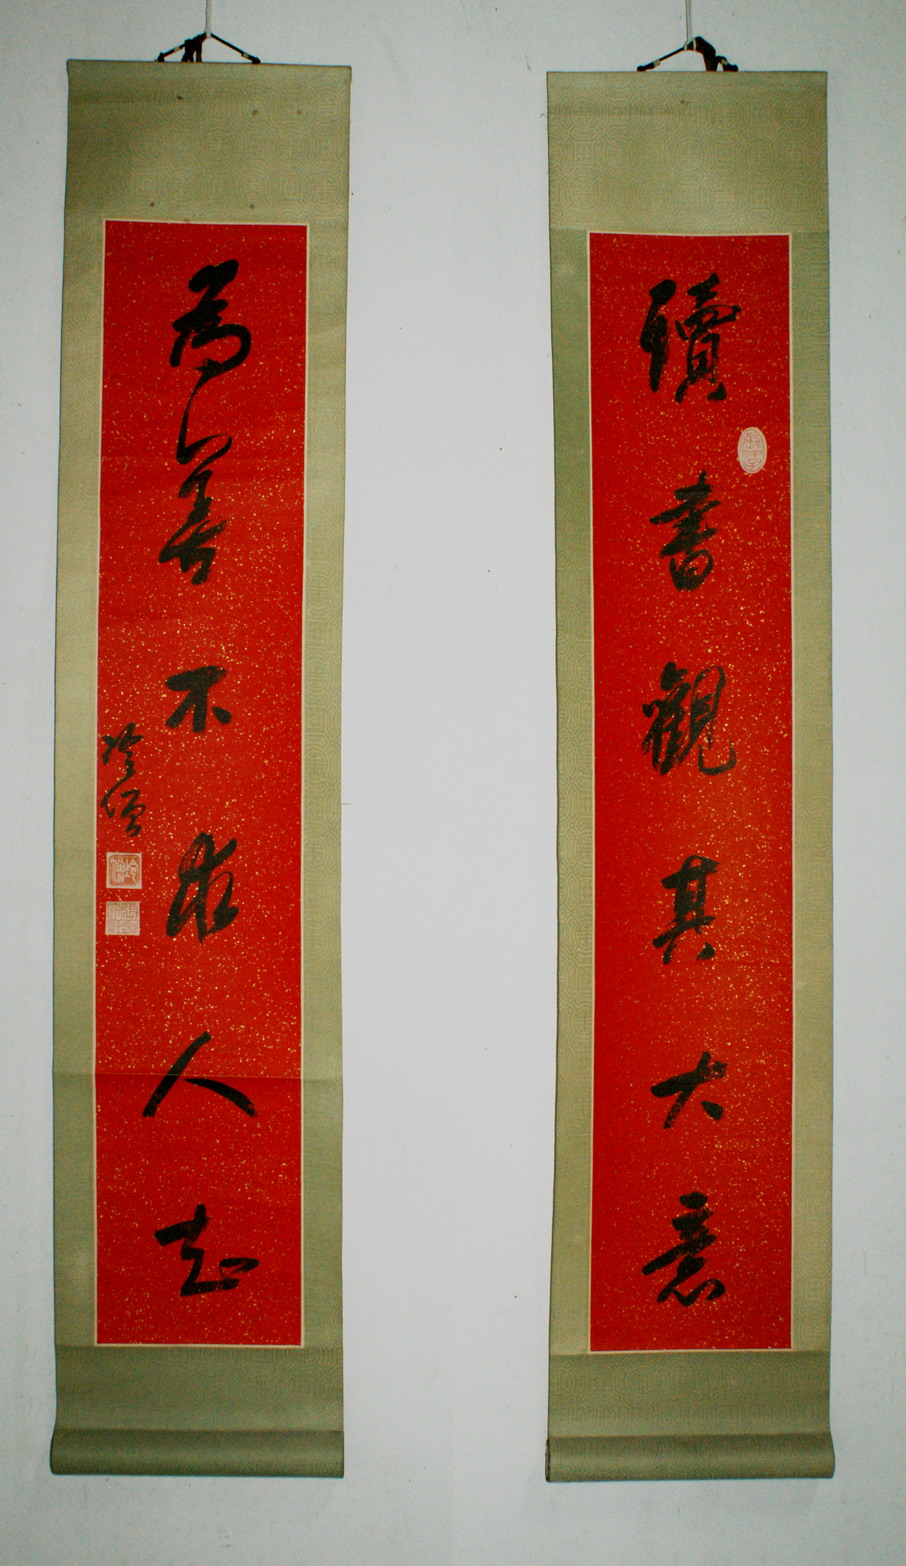 讀書觀其大意
為善不求人知